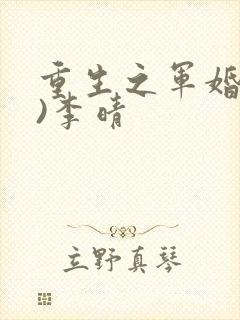 重生之军婚
)李晴
立野真琴